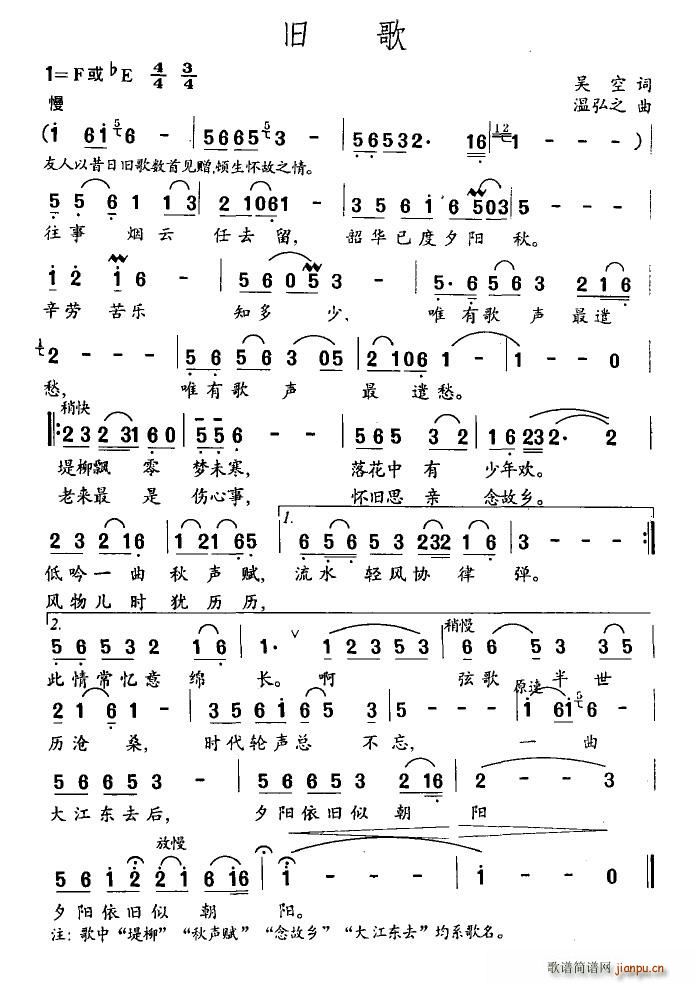 旧 歌
1=F或♭E 4/4 3/4
吴 空 词
慢
温弘之 曲
( i 6 i 6 - | 5 6 6 5 3 - | 5 6 5 3 2. 1 6 | 1 - - ) |
友人以昔日旧歌数首见赠,顿生怀故之情。
5 5 6 1 1 3 | 2 1 0 6 1 1 - | 3 5 6 i 6 5 0 3 | 5 - - |
往事 烟云 任去留, 韶华已度夕阳 秋。
i 2 i 6 | 5 6 0 5 3 | 5. 5 6 5 3 2 1 6 |
辛劳 苦乐 知多 少, 唯有歌 声 最遣
2 - - - | 5 6 5 6 3 0 5 | 2 1 0 6 1 | 1 - - 0 |
愁, 唯有歌 声 最 遣愁。
稍快
2 3 2 3 1 6 0 | 5 5 6 - - | 5 6 5 3 2 | 1 6 2 3 2. 2 |
堤柳飘 零 梦未寒, 落花中 有 少年欢。
老来最 是 伤心事, 怀旧思 亲 念故乡。
1.
2 3 2 1 6 | 1 2 1 6 5 | 6 5 6 5 3 2 3 2 1 6 | 3 - - - :|
低吟一 曲 秋声赋, 流水 轻风协 律 弹。
风物儿 时 犹 历历,
2. 稍慢
5 6 5 3 2 1 6 | 1. 1 2 3 5 3 | 6 6 5 3 3 5 |
此情常忆意 绵 长。啊 弦歌 半世
原速
2 1 6 1 - | 3 5 6 i 6 5 3 | 5 - - - | i 6 i 6 - |
历沧 桑, 时代轮声总 不忘, 一曲
5 6 6 5 3 - | 5 6 6 5 3 2 1 6 | 2 - - 3 |
大江东去后, 夕阳依旧似 朝 阳
放慢
5 6 i 2 2 1 6 6 i 6 | i - - - | i - - - |
夕阳依旧似 朝 阳。
注:歌中“堤柳”“秋声赋”“念故乡”“大江东去”均系歌名。
歌谱简谱网
jianpu.cn